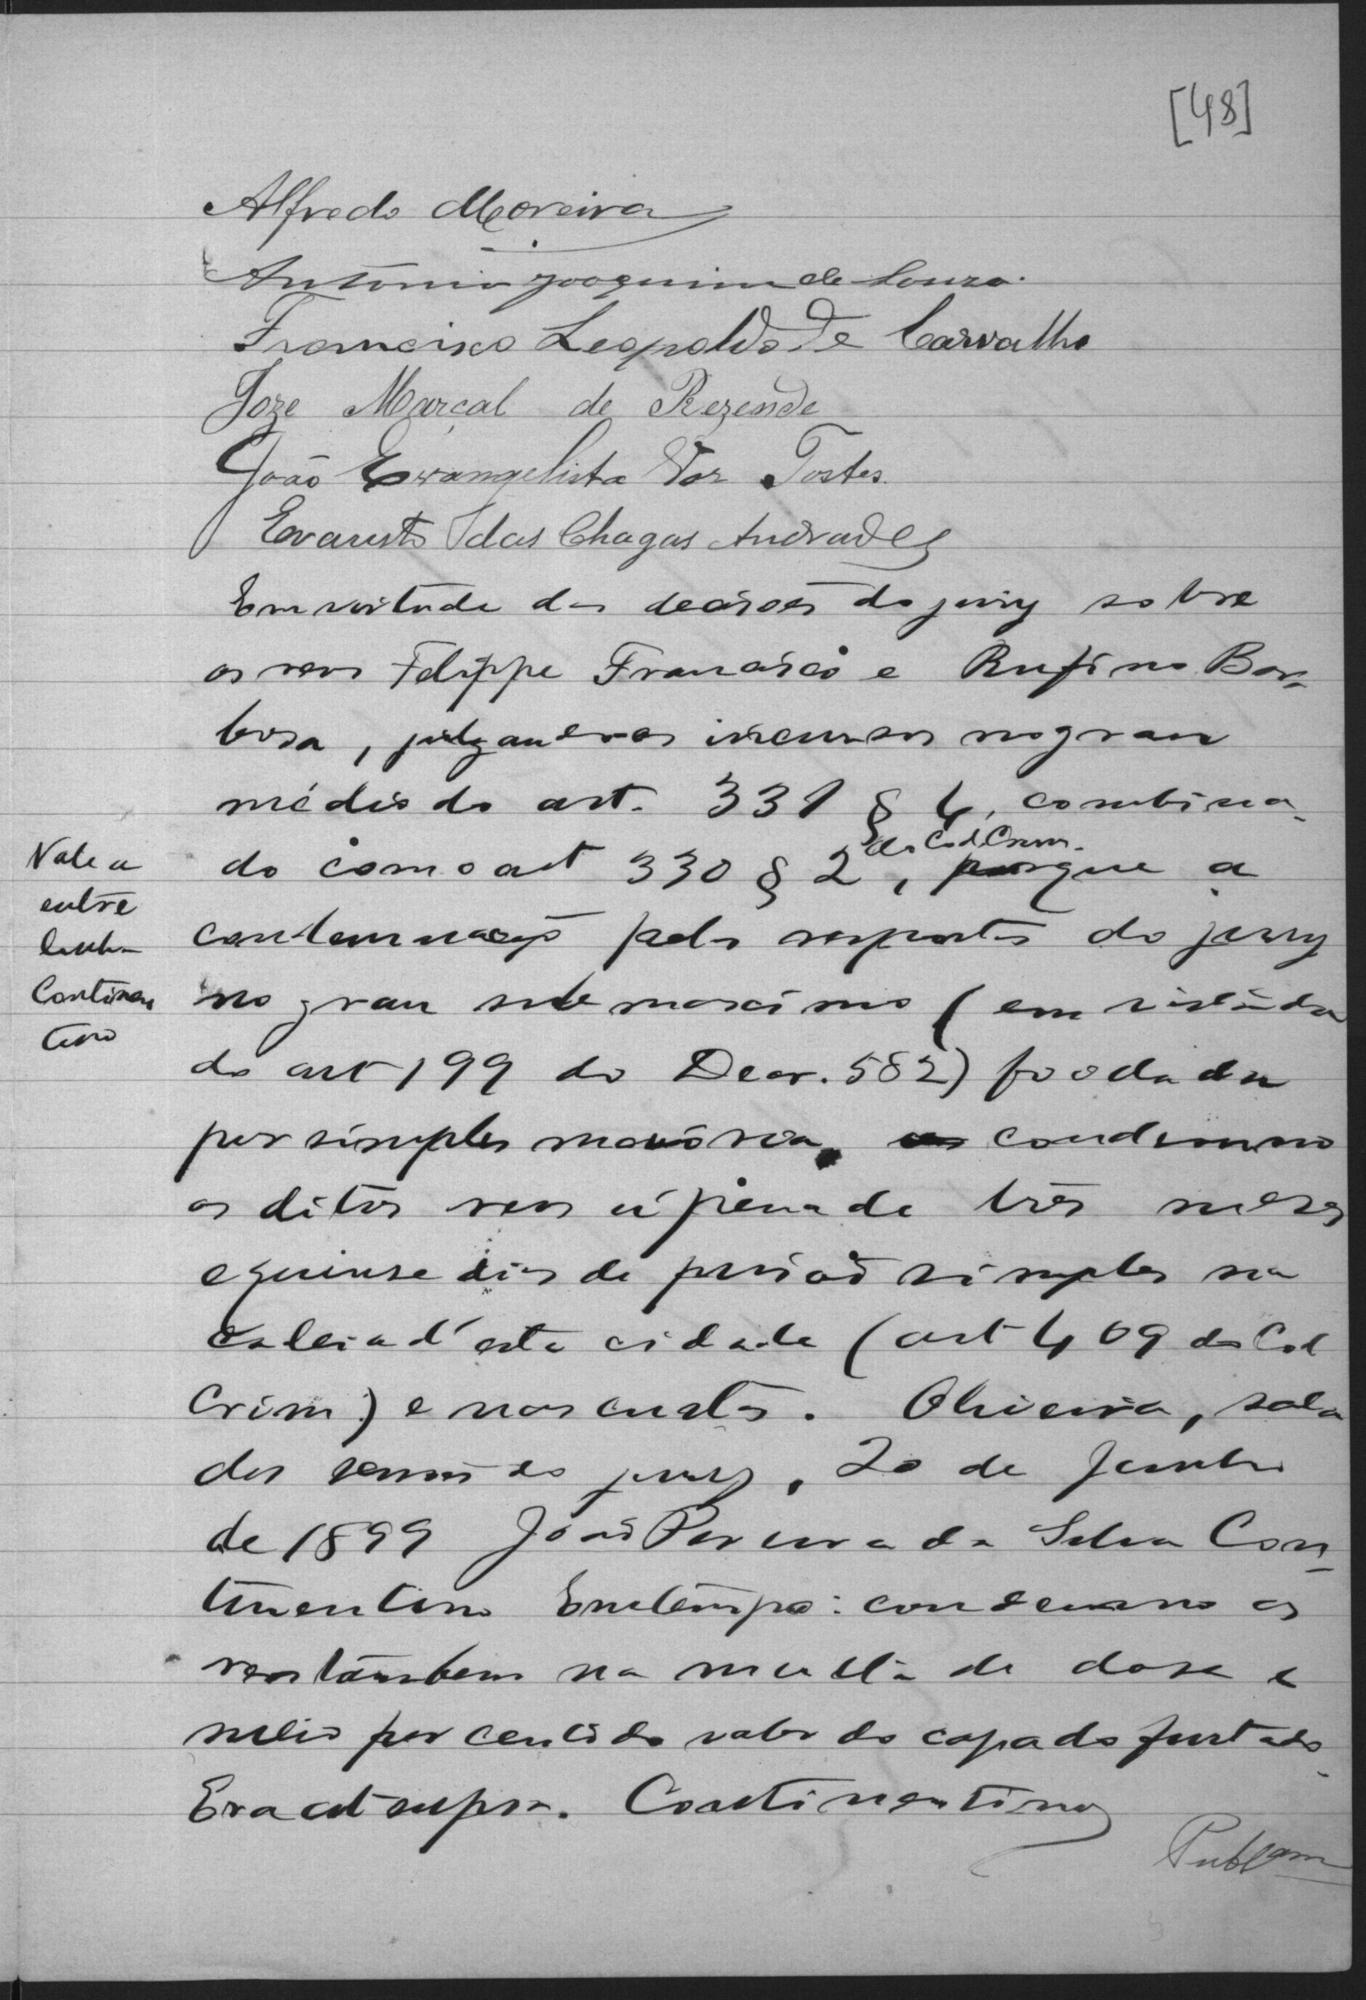 [48]
Alfredo Moreira
Antonio Joaquim de Souza.
Francisco Leopoldo de Carvalho
Joze Marçal de Rezende
João Evangelista Vaz Tostes.
Evaristo das Chagas Andrade
Em virtude das decisões do jury sobre
os reos Felippe Francisco e Rufino Bar-
bosa, julgando-os incursos no grau
médio do art. 331 § 4, combina-
do com o art 330 § 2, do Cod. Crim. porque a
condemnação pelas respostas do jury
no grau sub maximo (em virtude
do art 199 do Decr. 582) foo dada
por simples maioria, condemno
os ditos reos á pena de tres mezes
e quinse dias de prisão simples na
cadeia d'esta cidade (art 409 do Cod
Crim.) e nas custas. Oliveira, sala
das sessões do jury, 20 de Junho
de 1899 João Pereira da Silva Con-
tinentino Em tempo: condemno os
reos tambem na multa de dose e
meio por cento do valor do capado furtado.
Era ut supra. Continentino
Vale a
entre
linha
Continen
tino